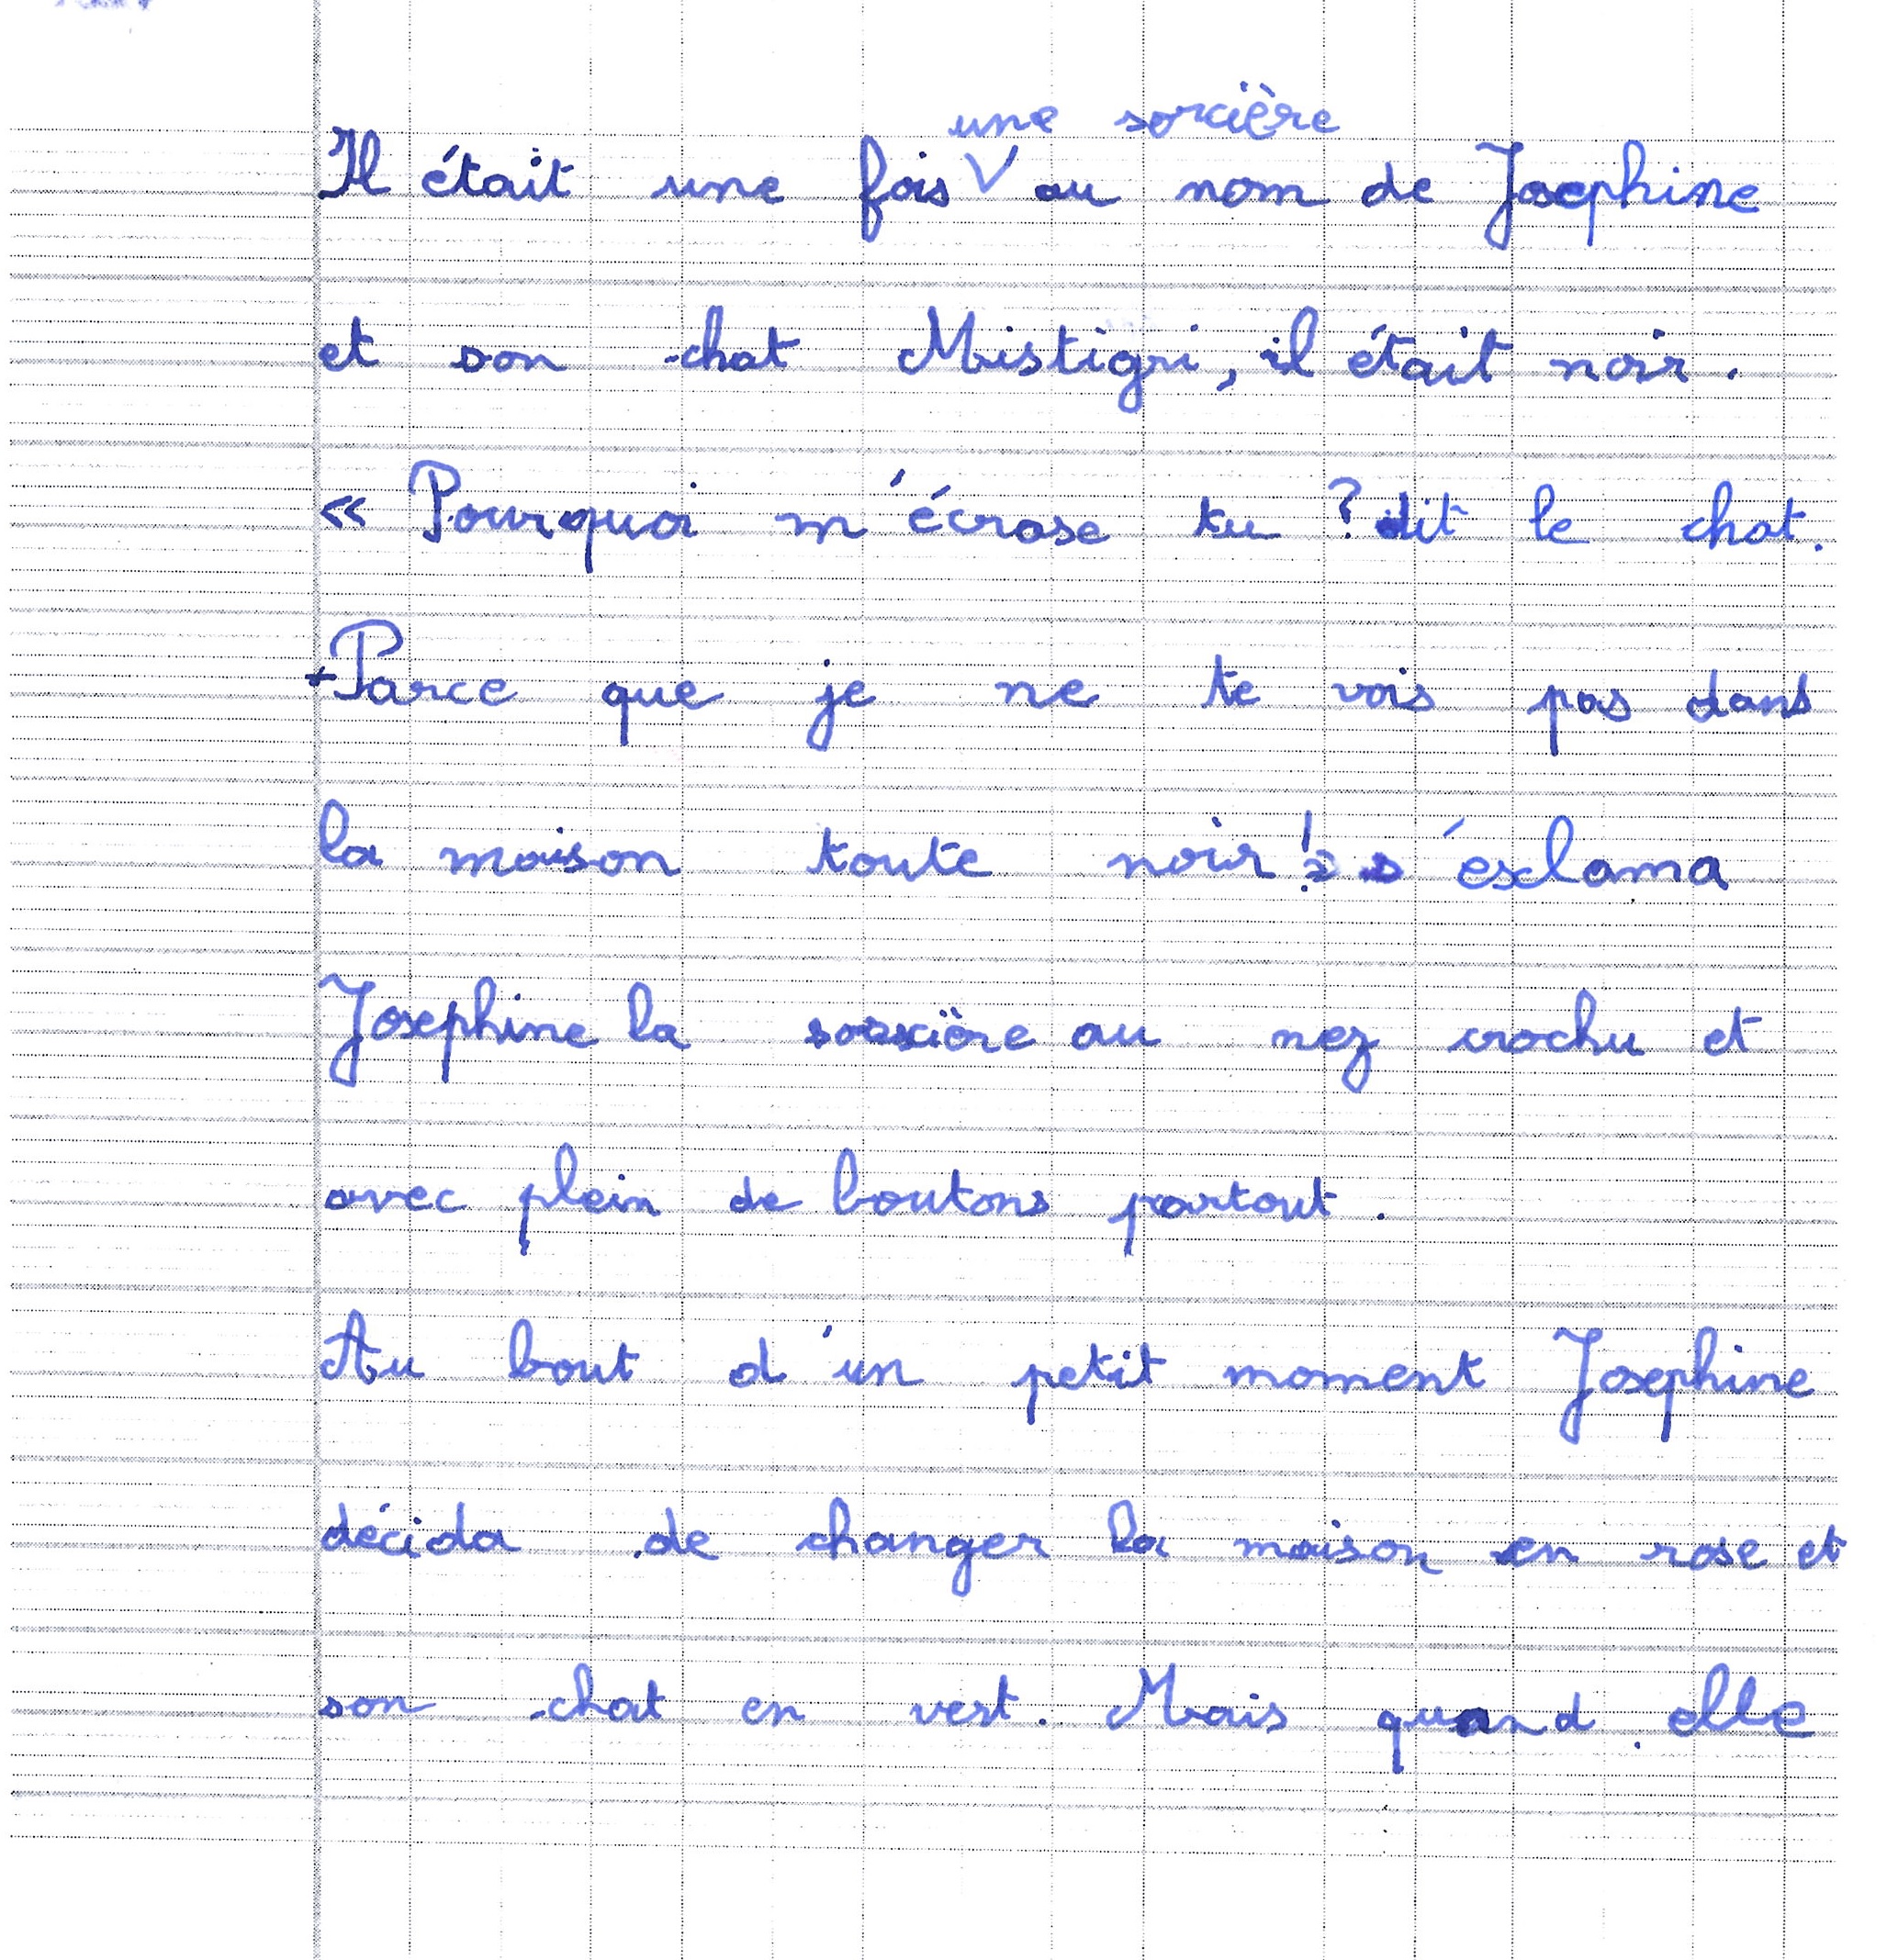 une sorcière
Il était une fois V au nom de Josephine
et son chat Mistigri, il était noir.
« Pourquoi m'écrase tu ? dit le chat.
-Parce que je ne te vois pas dans
la maison toute noir ! s'ésclama
Josephine la sorcière au nez crochu et
avec plein de boutons partout.
Au bout d'un petit moment Josephine
décida de changer la maison en rose et
son chat en vert. Mais quand elle